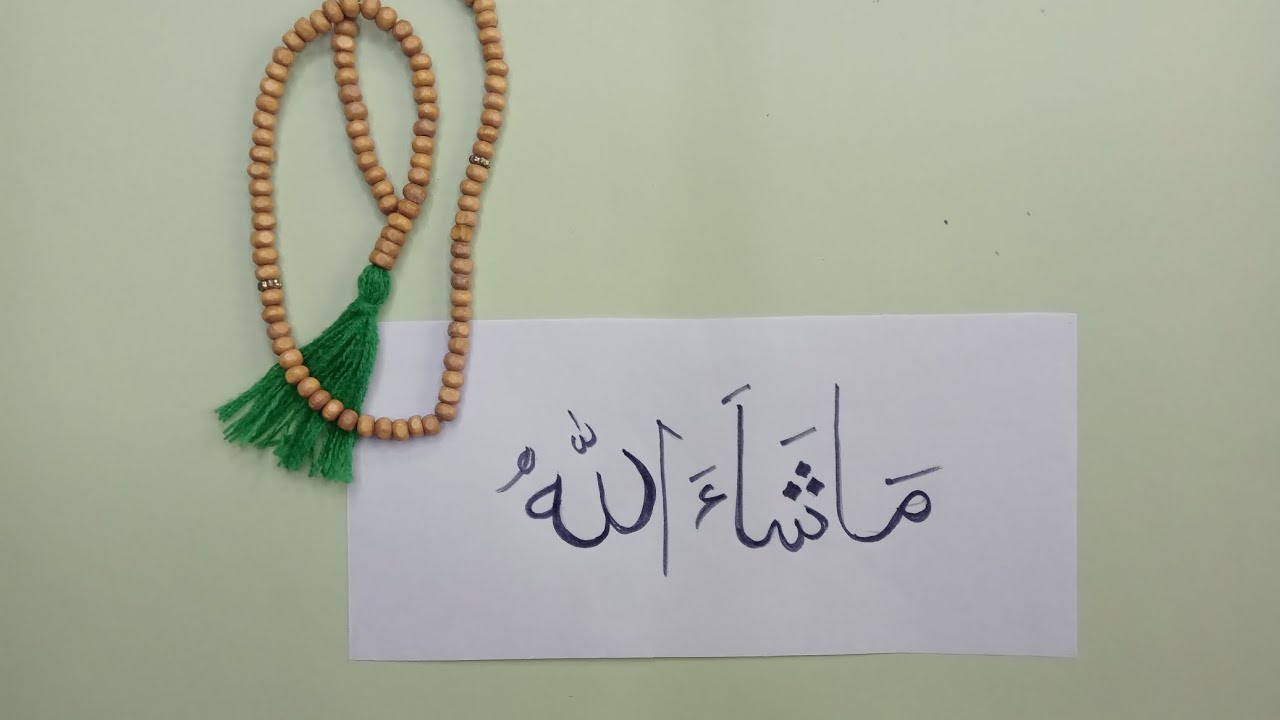 مَا شَاَءَ اللّٰهُ